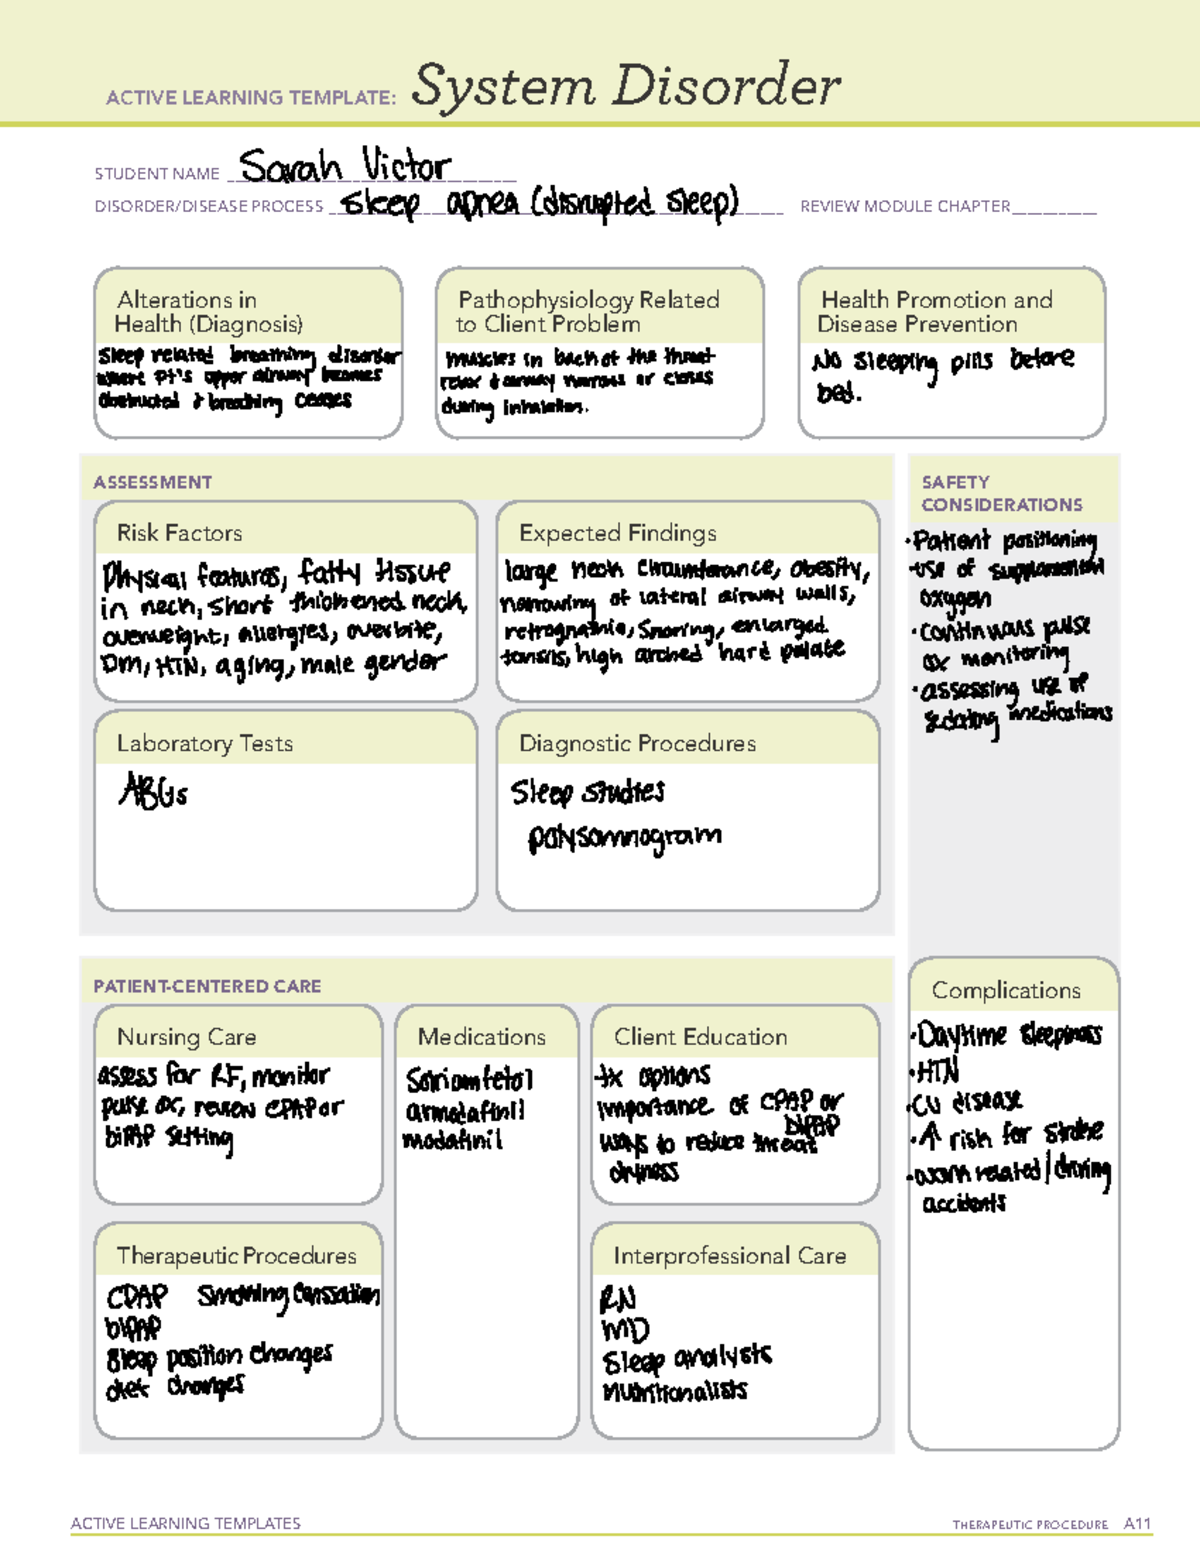 ACTIVE LEARNING TEMPLATE: System Disorder
STUDENT NAME Sarah Victor
DISORDER/DISEASE PROCESS Sleep apnea (disrupted sleep) REVIEW MODULE CHAPTER
Alterations in
Health (Diagnosis)
Sleep related breathing disorder
where pt's upper airway becomes
obstructed & breathing ceases
Pathophysiology Related
to Client Problem
muscles in back of the throat
relax & airway narrows or closes
during inhalation.
Health Promotion and
Disease Prevention
No sleeping pills before
bed.
ASSESSMENT
Risk Factors
Physical features, fatty tissue
in neck, short thickened neck,
overweight, allergies, overbite,
DM, HTN, aging, male gender
Expected Findings
large neck circumference, obesity,
narrowing of lateral airway walls,
retrognathia, snoring, enlarged
tonsils, high arched hard palate
Laboratory Tests
ABGs
Diagnostic Procedures
Sleep studies
polysomnogram
SAFETY
CONSIDERATIONS
·Patient positioning
·use of supplemental
oxygen
·continuous pulse
ox monitoring
·assessing use of
sedating medications
PATIENT-CENTERED CARE
Nursing Care
assess for RF, monitor
pulse ox, review CPAP or
biPAP setting
Medications
armodafinil
modafinil
Client Education
tx options
importance of CPAP or
biPAP
ways to reduce throat
dryness
Therapeutic Procedures
CPAP Smoking Cessation
biPAP
Sleep position changes
diet changes
Interprofessional Care
RN
MD
Sleep analysts
nutritionalists
Complications
·Daytime sleepiness
·HTN
·CV disease
·↑ risk for stroke
·work related/driving
accidents
ACTIVE LEARNING TEMPLATES
THERAPEUTIC PROCEDURE A11